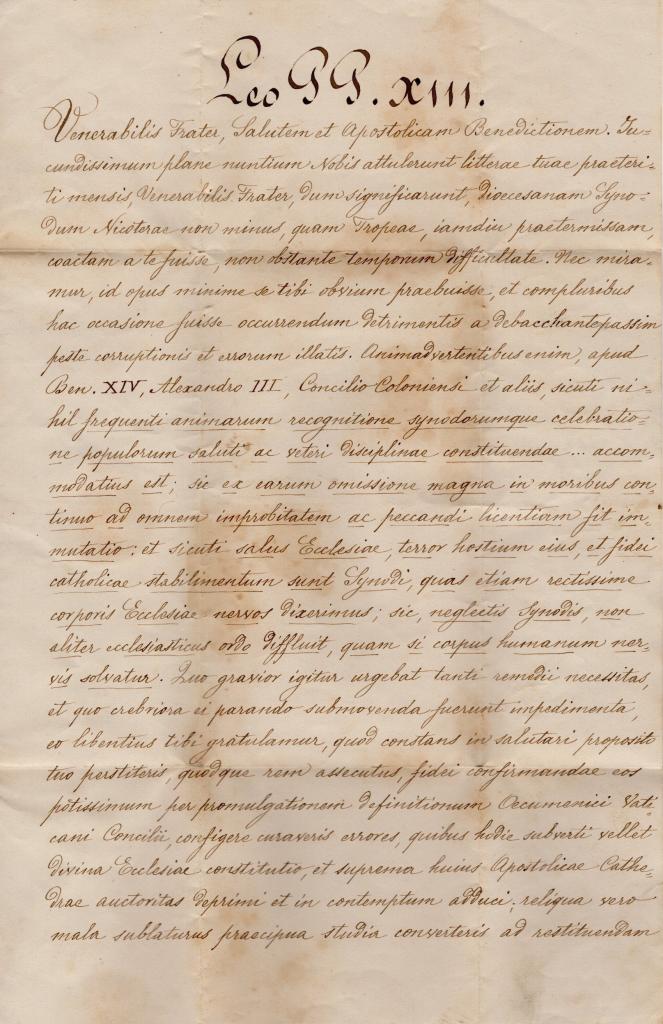 Leo PP. XIII.
Venerabilis Frater, Salutem et Apostolicam Benedictionem. Ju-
cundissimum plane nuntium Nobis attulerunt litterae tuae praeteri-
ti mensis, Venerabilis Frater, dum significarunt, dioecesanam Syno-
dum Nicoterae non minus, quam Tropeae, iamdiu praetermissam,
coactam a te fuisse, non obstante temporum difficultate. Nec mira-
mur, id opus minime se tibi obvium praebuisse, et compluribus
hac occasione fuisse occurrendum detrimentis a debacchante passim
peste corruptionis et errorum illatis. Animadvertentibus enim, apud
Ben. XIV, Alexandro III, Concilio Coloniensi et aliis, sicuti ni-
hil frequenti animarum recognitione synodorumque celebratio-
ne populorum saluti ac veteri disciplinae constituendae ... accom-
modatius est; sic ex earum omissione magna in moribus con-
tinuo ad omnem improbitatem ac peccandi licentiam fit im-
mutatio: et sicuti salus Ecclesiae, terror hostium eius, et fidei
catholicae stabilimentum sunt Synodi, quas etiam rectissime
corporis Ecclesiae nervos dixerimus; sic, neglectis Synodis, non
aliter ecclesiasticus ordo diffluit, quam si corpus humanum ner-
vis solvatur. Quo gravior igitur urgebat tanti remedii necessitas,
et quo crebriora ei parando submovenda fuerunt impedimenta,
eo libentius tibi gratulamur, quod constans in salutari proposito
tuo perstiteris, quodque rem assecutus, fidei confirmandae eos
potissimum per promulgationem definitionum Oecumenici Vati
cani Concilii, configere curaveris errores, quibus hodie subverti vellet
divina Ecclesiae constitutio, et suprema huius Apostolicae Cathe-
drae auctoritas deprimi et in contemptum adduci; reliqua vero
mala sublaturus praecipua studia converteris ad restituendam